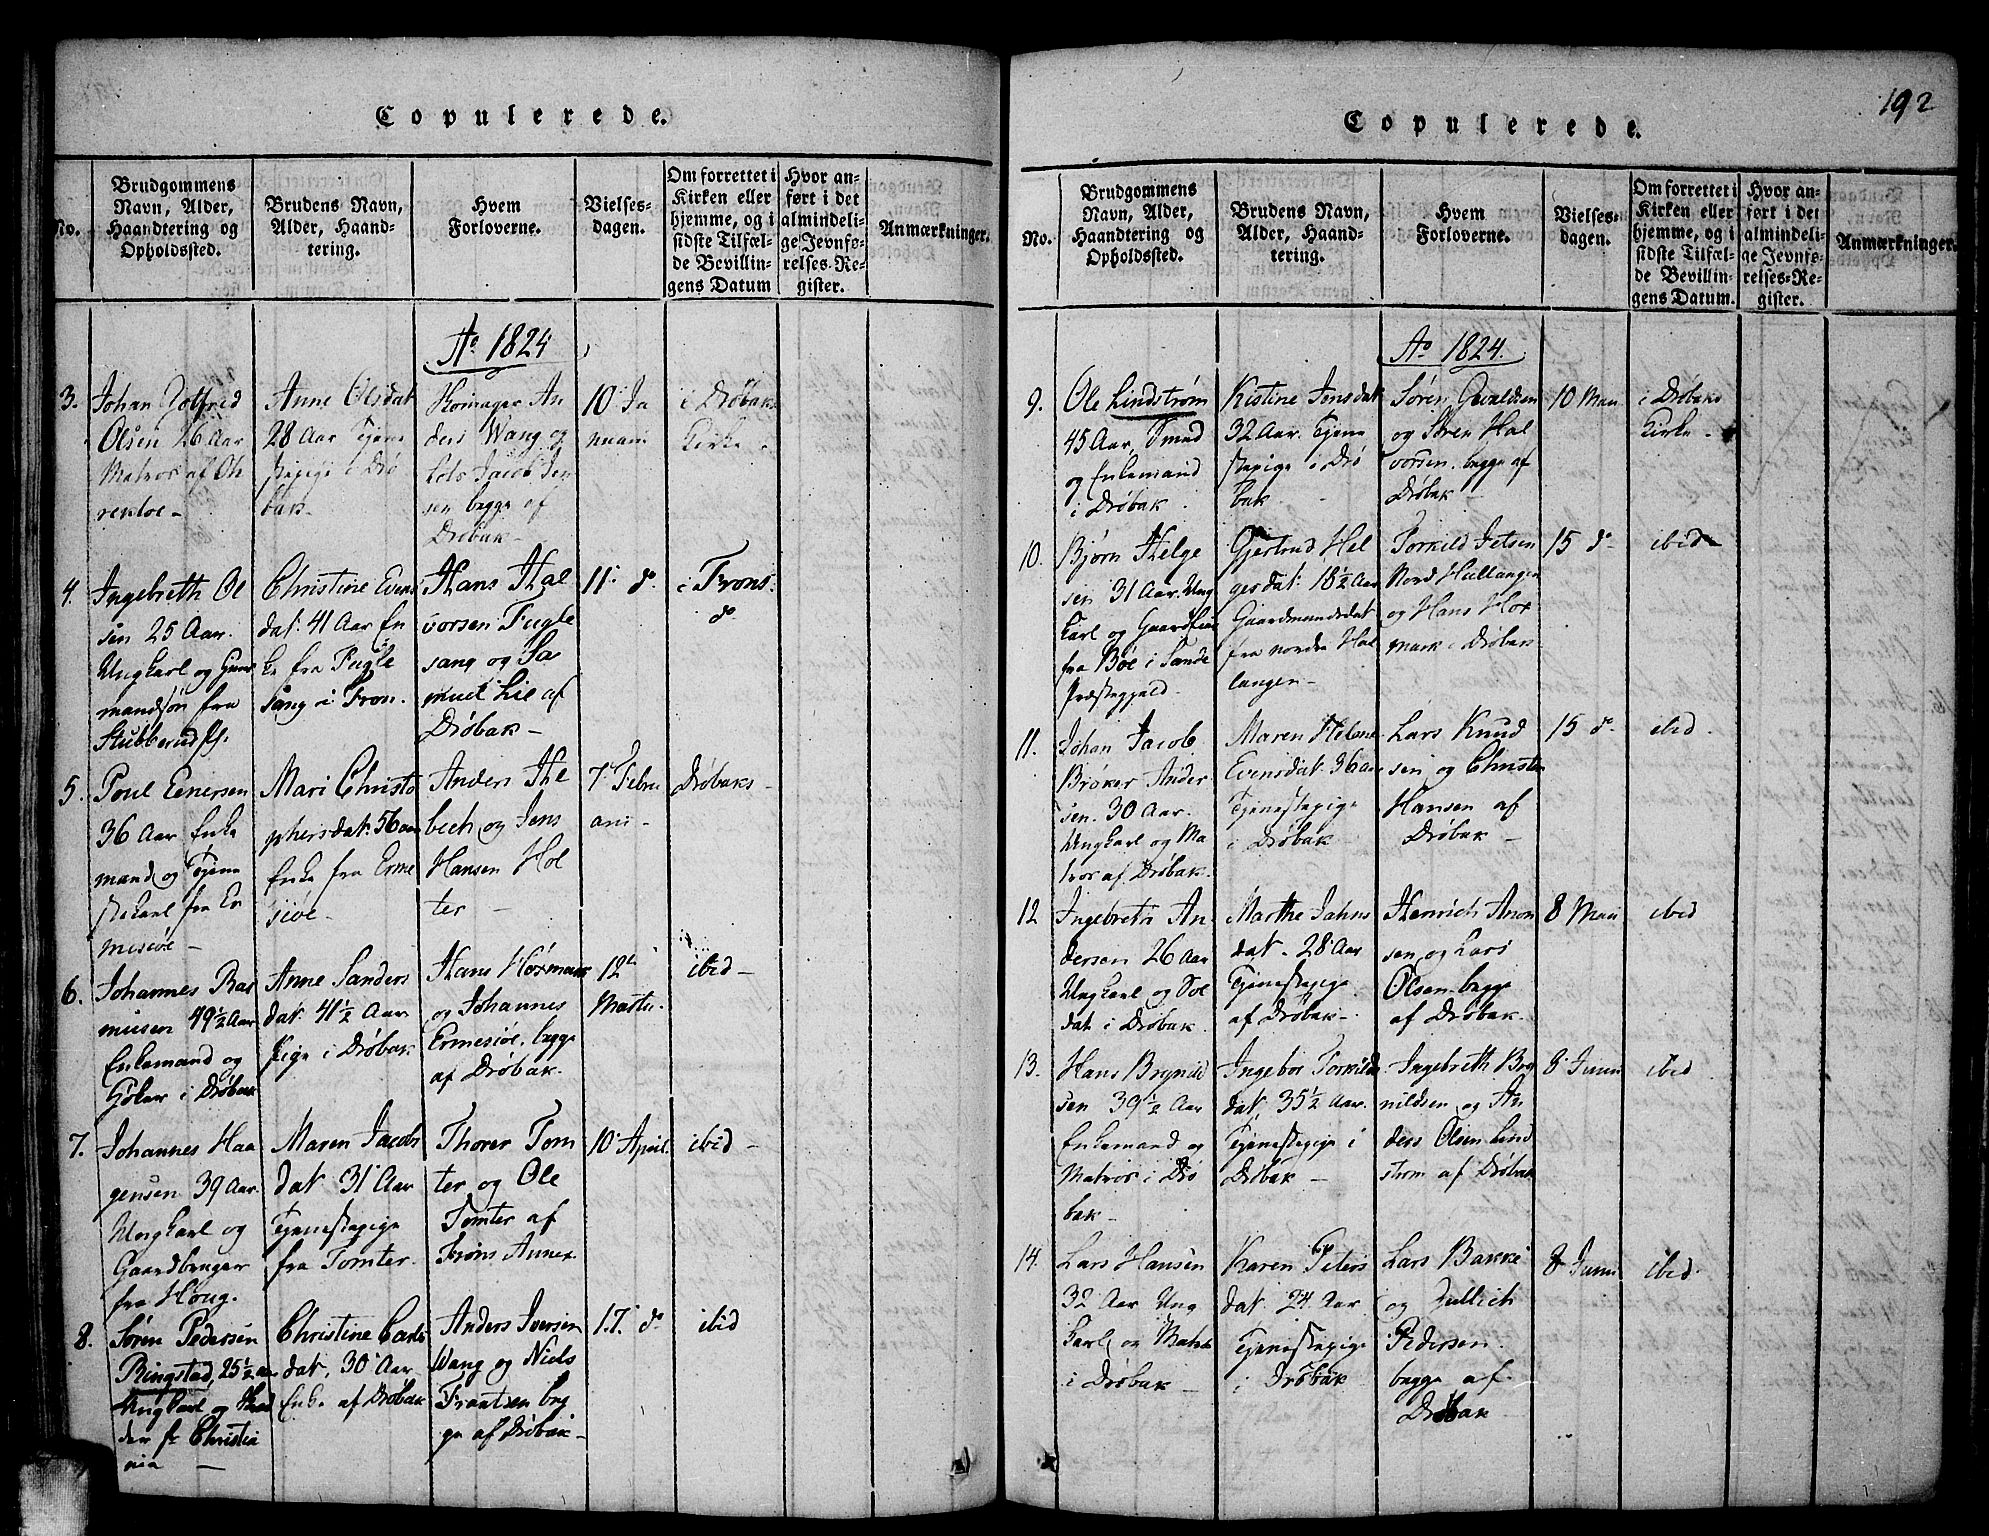 Copulerede.
No.
Brudgommens
Navn, Alder,
Haandtering og
Opholdssted.
Brudens Navn,
Alder, Haand-
tering.
Hvem
Forloverne.
Vielses-
dagen.
Om forrettet i
Kirken eller
hjemme, og i
sidste Tilfæl-
de Bevillin-
gens Datum
Hvor an-
ført i det
almindeli-
ge Jevnfø-
relses-Re-
gister.
Anmærkninger.
Ao 1824
3.
Johan Gotfried
Olsen 26 Aar
Matros af
Anne Olsdat
28 Aar Tjene
stepige i Drø
bak.
Anders Wang og
Jacob Jen
sen begge af
Drøbak
10 Ja
nuari
i Drøbaks
Kirke
4.
Ingebreth Ol
sen 25 Aar.
Ungkarl og
mandssøn fra
Stubberud
Christine Evens
dat. 41 Aar En
ke fra Fugle
sang i Fron.
Hans Hal
vorsen Fugle
sang og Sa
muel Lie af
Drøbak
11 do
i Frons
do
5.
Poul Einersen
36 Aar Enke
mand og Tjene
stekarl fra Er
mesiøe
Mari Christo
phersdat. 56 aar
Enke fra Erme
siöe.
Anders He
bech og Jens
Hansen Hol
ter
7 Febru
ari
Drøbaks
6.
Johannes Ras
musen 49½ Aar
Enkemand og
i Drøbak
Anne Sanders
dat. 41½ Aar
Pige i Drøbak
Hans Hoxmark
og Johannes
Ermesiøe, begge
af Drøbak.
12
Martii
ibid
7.
Johannes Haa
gensen 39 Aar.
Ungkarl og
Gaardbruger
fra Houg.
Maren Jacobs
dat 31 Aar
Tjenestepige
fra Tomter.
Thorer Tom
ter og Ole
Tomter af
Annex.
10 April.
ibid
8.
Søren Pedersen
Ringstad, 25½ aar
Ungkarl og
Christia
nia
Christine Carls
dat. 30 Aar
Enke af Drøbak
Anders Iversen
Wang og Niels
Frantsen beg
ge af Drøbak
17. do
ibid
192
Copulerede.
No.
Brudgommens
Navn, Alder,
Haandtering og
Opholdssted.
Brudens Navn,
Alder, Haand-
tering.
Hvem
Forloverne.
Vielses-
dagen.
Om forrettet i
Kirken eller
hjemme, og i
sidste Tilfæl-
de Bevillin-
gens Datum.
Hvor an-
ført i det
almindeli-
ge Jevnfø-
relses-Re-
gister.
Anmærkninger.
Ao 1824.
9.
Ole Lindstrøm
45 Aar, Smed
og Enkemand
i Drøbak
Kistine Jensdat
32 Aar. Tjene
stepige i Drø
bak
Søren
og Søren Hal
vorsen. begge af
Drøbak
10 Maii
i Drøbaks
Kirke
10.
Bjørn Helge
sen 31 Aar. Ung
karl og
fra Böe i Sande
Præstegjeld.
Gjertrud Hel
gersdat. 18½ Aar
Gaardmandsdat
fra nordre Hal
langen
Torkild Jetsen
Nord Hallangen
og Hans Hox
mark i Drøbak
15 do
ibid
11.
Johan Jacob
Brøker Ander
sen. 30 Aar.
Ungkarl og Ma
tros af Drøbak.
Maren Helene
Evensdat. 36 aar
Tjenestepige
i Drøbak
Lars Knud
sen og Christen
Hansen af
Drøbak
15 do
ibid.
12
Ingebreth An
dersen 26 Aar
Ungkarl og Sol
dat i Drøbak.
Marthe Jahns
dat. 28 Aar
Tjenestepige
af Drøbak
Henrich Aron
sen og Lars
Olsen. begge
af Drøbak.
8 Maii
ibid
13.
Hans Brynild
sen 39½ Aar
Enkemand og
Matros i Drø
bak
Ingebor Torkilds
dat. 35½ Aar.
Tjenestepige i
Drøbak
Ingebreth Bry
nildsen og An
ders Olsen Lind
strøm af Drøbak
8 Junii
ibid
14.
Lars Hansen
32 Aar Ung
karl og Matros
i Drøbak
Karen Peters
dat. 24 Aar
Tjenestepige
i Drøbak
Lars Bakke
og Zullich
Pedersen.
begge af
Drøbak
8 Junii
ibid.